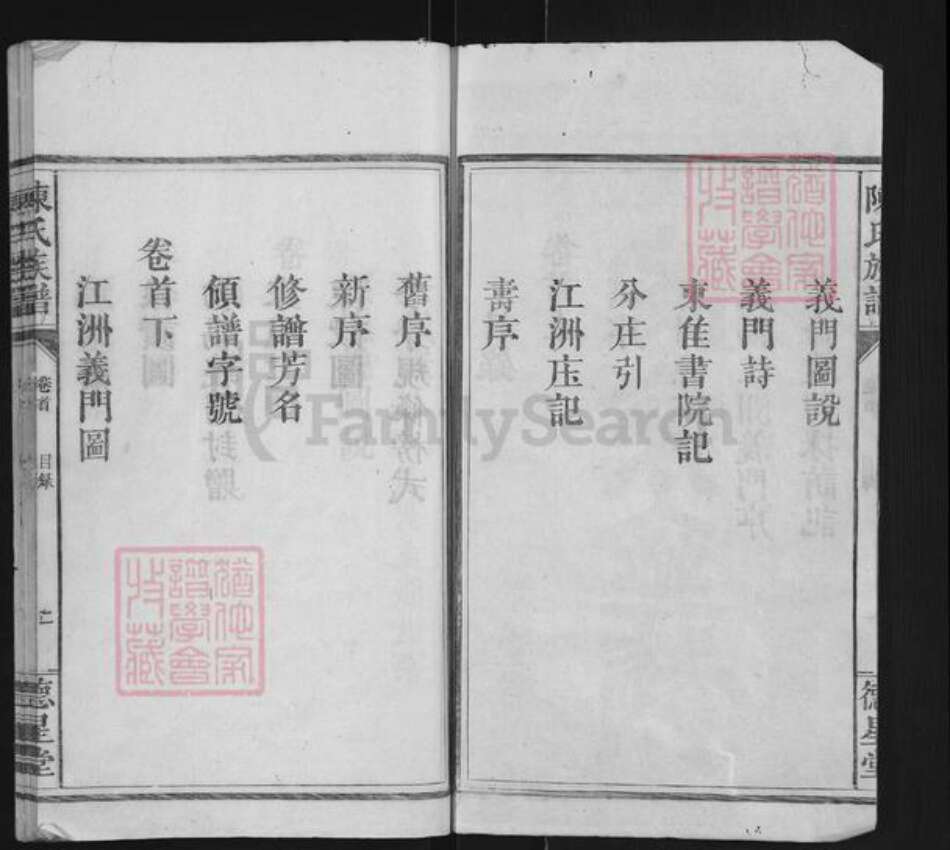 陳氏族譜
義門圖說
義門詩
東佳書院記
分庄引
江洲庄記
壽序
德星堂
舊序
新序
修譜芳名
領譜字號
卷首下
江洲義門圖
陳氏族譜
卷首
目録
二
德星堂
FamilySearch